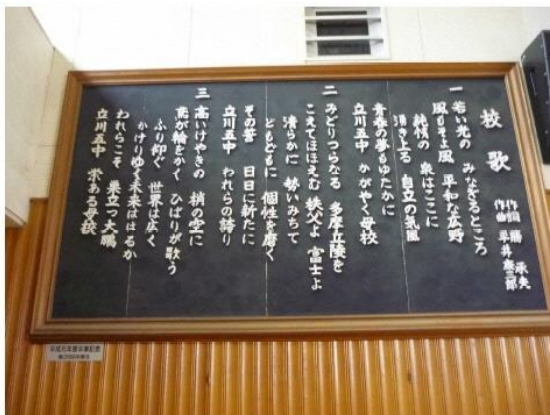 校歌
作詞 勝 承夫
作曲 平井康三郎
一 若い光の みなぎるところ
風もそよ風 平和な広野
純情の 泉はここに
湧き上る 自立の気風
青春の夢もゆたかに
立川五中 かがやく母校
二 みどりつらなる 多摩丘陵を
こえてほほえむ 秩父よ 富士よ
清らかに 勢いみちて
ともどもに 個性を磨く
その誉 日日に新たに
立川五中 われらの誇り
三 高いけやきの 梢の空に
鳶が輪をかく ひばりが歌う
ふり仰ぐ 世界は広く
かけりゆく未来ははるか
われらこそ 巣立つ大鵬
立川五中 栄ある母校
平成元年度卒業記念